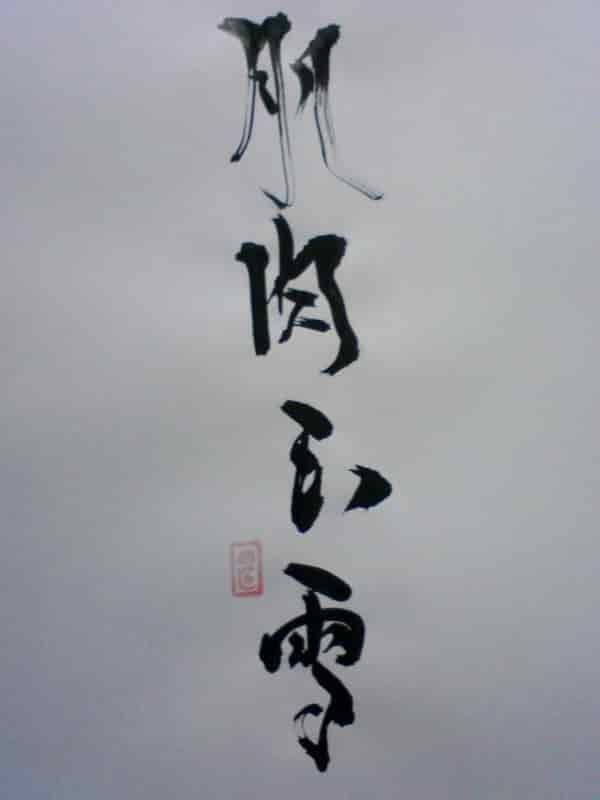 肌肉玉雪